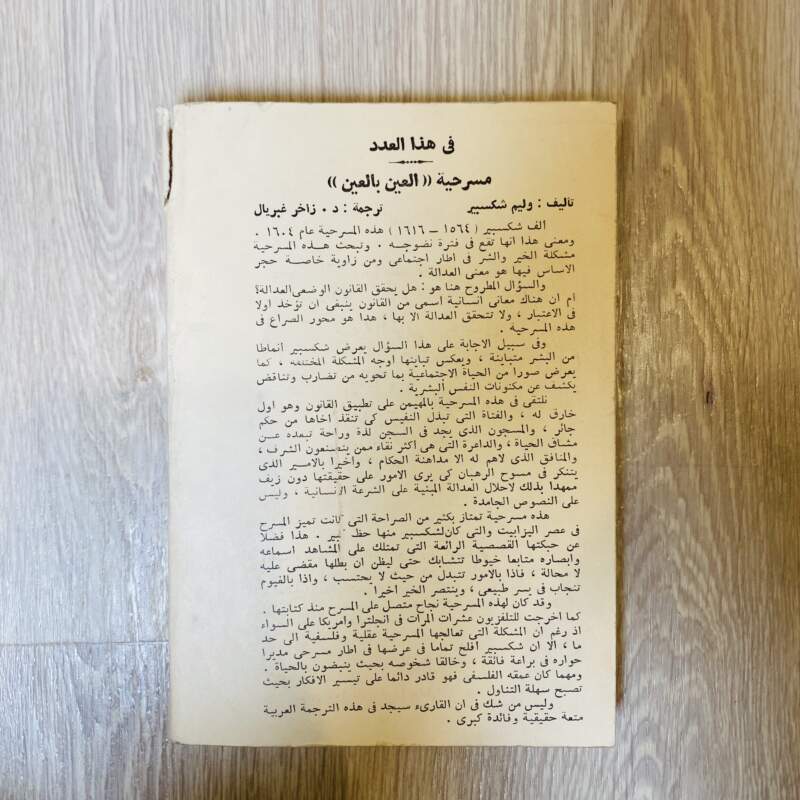 فى هذا العدد
مسرحية « العين بالعين »
تأليف : وليم شكسبير ترجمة : د. زاخر غبريال
الف شكسبير ( ١٥٦٤ – ١٦١٦ ) هذه المسرحية عام ١٦٠٤ .
ومعنى هذا انها تقع فى فترة نضوجه . وتبحث هذه المسرحية
مشكلة الخير والشر فى اطار اجتماعى ومن زاوية خاصة حجر
الاساس فيها هو معنى العدالة .
والسؤال المطروح هنا هو : هل يحقق القانون الوضعى العدالة؟
ام ان هناك معانى انسانية اسمى من القانون ينبغى ان تؤخذ اولا
فى الاعتبار ، ولا تتحقق العدالة الا بها ، هذا هو محور الصراع فى
هذه المسرحية .
وفى سبيل الاجابة على هذا السؤال يعرض شكسبير أنماطا
من البشر متباينة ، ويعكس تباينها اوجه المشكلة المختلفة ، كما
يعرض صورا من الحياة الاجتماعية بما تحويه من تضارب وتناقض
يكشف عن مكنونات النفس البشرية .
نلتقى فى هذه المسرحية بالمهيمن على تطبيق القانون وهو اول
خارق له ، والفتاة التى تبذل النفيس كى تنقذ اخاها من حكم
جائر ، والمسجون الذى يجد فى السجن لذة وراحة تبعده عن
مشاق الحياة ، والداعرة التى هى اكثر نقاء ممن يتصنعون الشرف ،
والمنافق الذى لاهم له الا مداهنة الحكام ، وأخيرا بالامير الذى
يتنكر فى مسوح الرهبان كى يرى الامور على حقيقتها دون زيف
ممهدا بذلك لاحلال العدالة المبنية على الشرعة الانسانية ، وليس
على النصوص الجامدة .
هذه مسرحية تمتاز بكثير من الصراحة التى كانت تميز المسرح
فى عصر اليزابيت والتى كان لشكسبير منها حظ كبير . هذا فضلا
عن حبكتها القصصية الرائعة التى تمتلك على المشاهد اسماعه
وابصاره متابعا خيوطا تتشابك حتى ليظن ان بطلها مقضى عليه
لا محالة ، فاذا بالامور تتبدل من حيث لا يحتسب ، واذا بالغيوم
تنجاب فى يسر طبيعى ، وينتصر الخير اخيرا .
وقد كان لهذه المسرحية نجاح متصل على المسرح منذ كتابتها .
كما اخرجت للتلفزيون عشرات المرات فى انجلترا وامريكا على السواء
اذ رغم ان المشكلة التى تعالجها المسرحية عقلية وفلسفية الى حد
ما ، الا ان شكسبير افلح تماما فى عرضها فى اطار مسرحى مديرا
حواره فى براعة فائقة ، وخالقا شخوصه بحيث ينبضون بالحياة .
ومهما كان عمقه الفلسفى فهو قادر دائما على تيسير الافكار بحيث
تصبح سهلة التناول .
وليس من شك فى ان القارىء سيجد فى هذه الترجمة العربية
متعة حقيقية وفائدة كبرى .